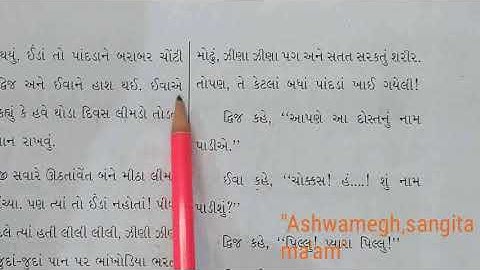 થયું, ઈંડાં તો પાંદડાને બરાબર ચોંટી
દ્વિજ અને ઈવાને હાશ થઈ. ઈવાએ
કહ્યું કે હવે થોડા દિવસ લીમડો તોડ
ધ્યાન રાખવું.
જી સવારે ઊઠતાંવેંત બંને મીઠા લીમ
ંચ્યા. પણ ત્યાં તો ઈંડાં નહોતાં! પી
દલે ત્યાં હતી લીલી લીલી, ઝીણી ઝીણ
જુદાં-જુદાં પાન પર ભાંખોડિયા ભરત
મોઢું, ઝીણા ઝીણા પગ અને સતત સરકતું શરીર.
તોપણ, તે કેટલાં બધાં પાંદડાં ખાઈ ગયેલી!
દ્વિજ કહે, “આપણે આ દોસ્તનું નામ
પાડીએ.”
ઈવા કહે, “ચોક્કસ! હં....! શું નામ
પાડીશું?”
દ્વિજ કહે, “પિલ્લુ! પ્યારા પિલ્લુ!”
"Ashwamegh,sangita
ma'am